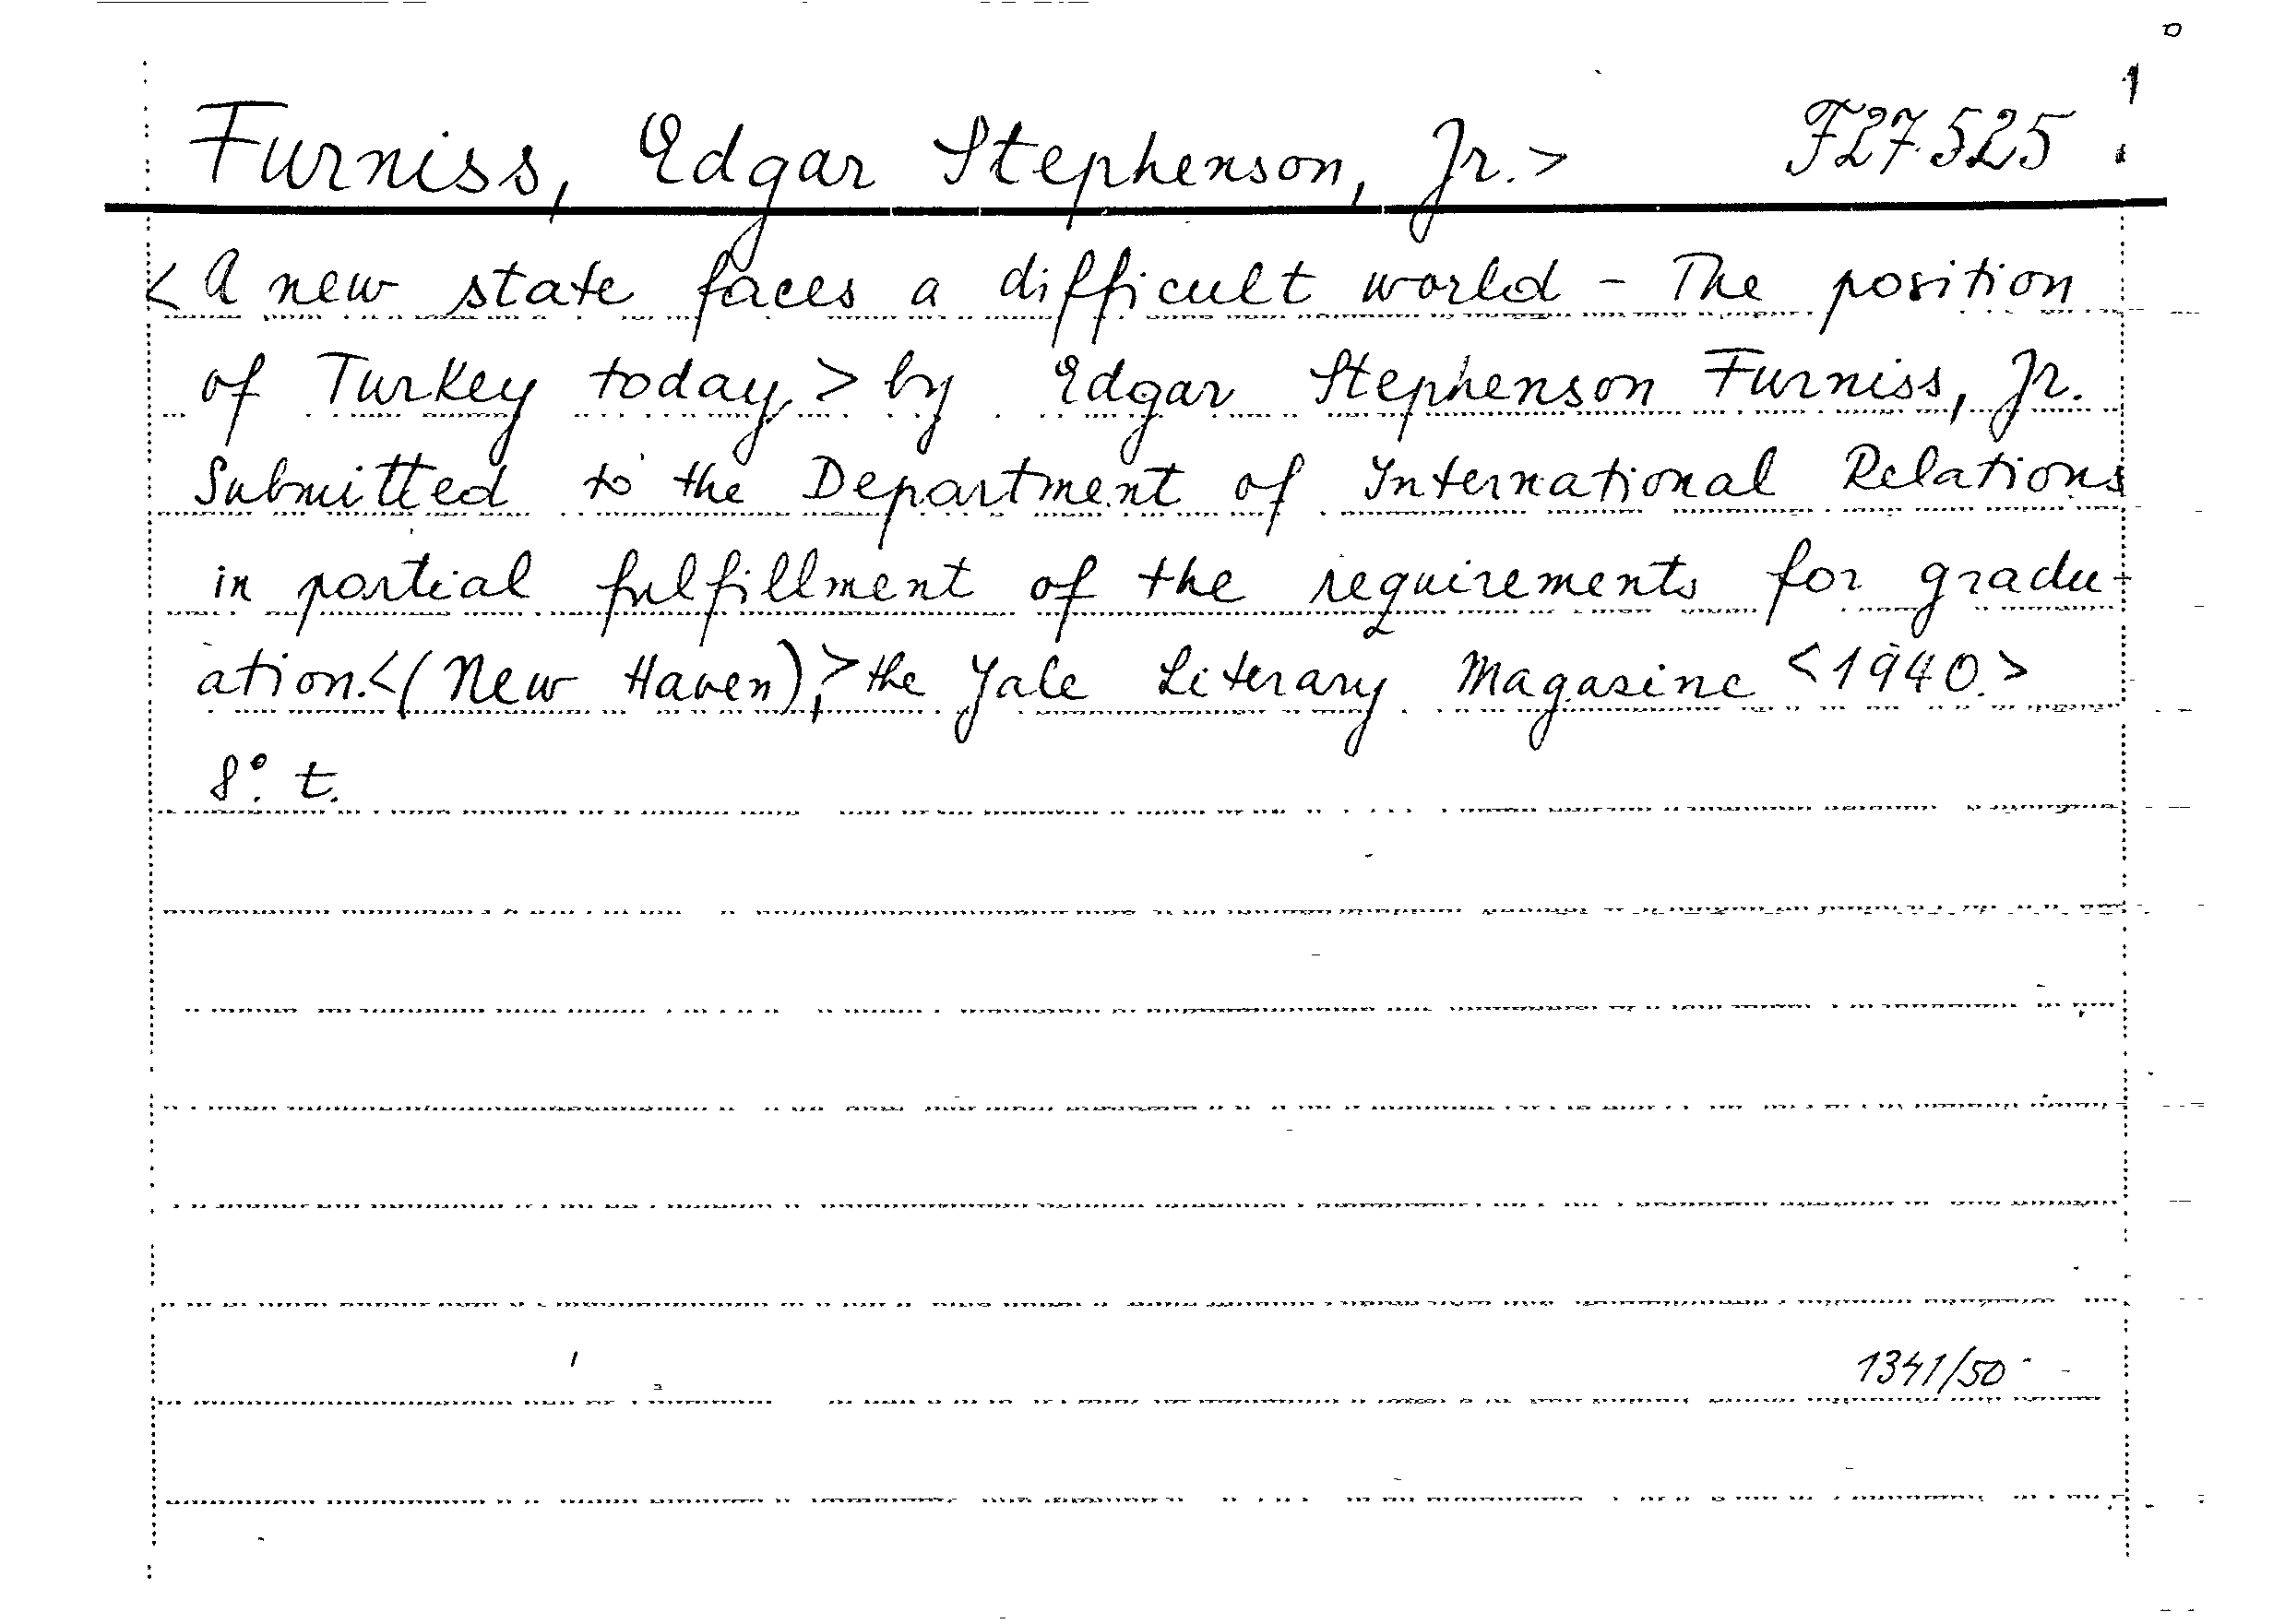 Furniss, Edgar Stephenson, Jr.> F27.525
<A new state faces a difficult world - The position
of Turkey today,> by Edgar Stephenson Furniss, Jr.
Submitted to the Department of International Relations
in partial fulfillment of the requirements for gradu-
ation.<(New Haven),> the Yale Literary Magasine <1940.>
8°. t.
1341/50